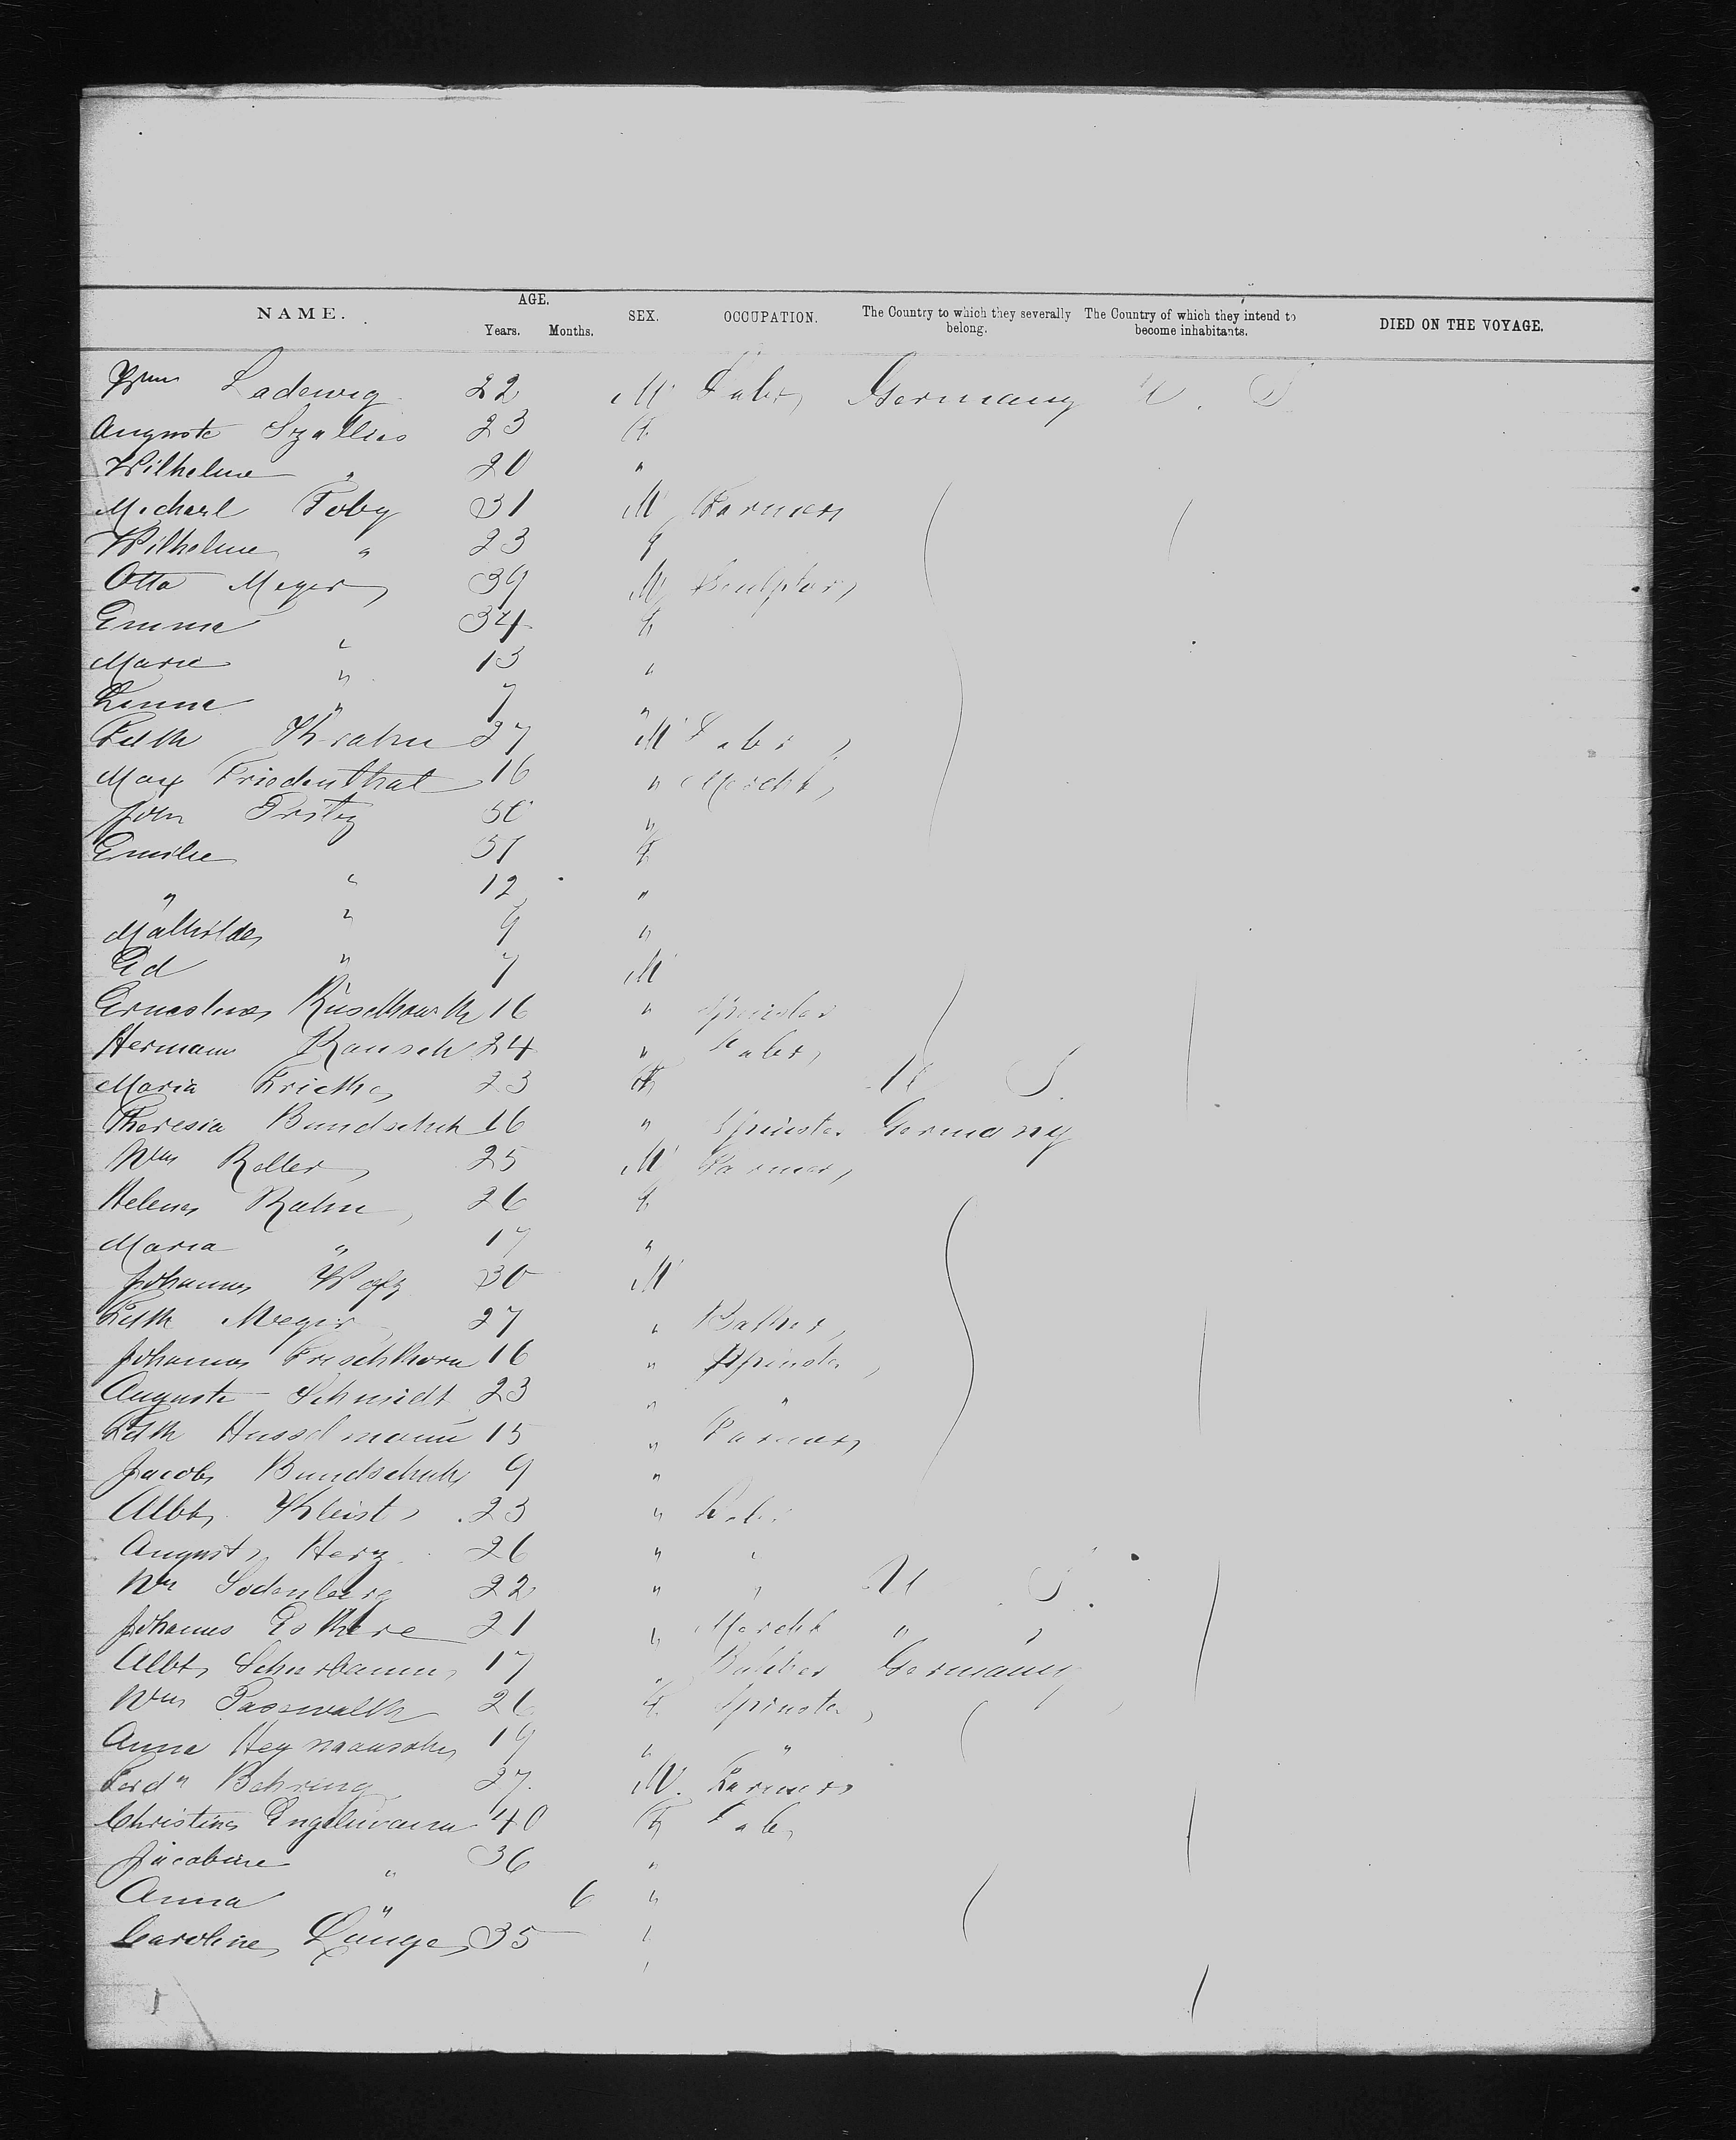 NAME. AGE. Years. Months. SEX. OCCUPATION. The Country to which they severally belong. The Country of which they intend to become inhabitants. DIED ON THE VOYAGE.
Wm Ladewig 22 M Labr Germany U. S
Auguste Szallies 23 F
Wilhelme " 20 "
Michael Toby 31 M Farmer
Wilhelme " 23 F
Otto Meyer 39 M Sculptor
Emma " 34 F
Marie " 13 "
Lenne " 7 "
Krahn 27 M Labr
Max Friedenthal 16 " Mercht
John 50 "
Emilie " 37 F
" " 12 "
Mathilde " 9 "
Ed " 7 M
Ernestine 16 " Spinster
Hermann Rausch 24 " Labr
Maria 23 F U S.
Theresia Bundschuh 16 " Spinster Germany
Wm Roller 25 M Farmer
Helene Rahn 26 F
Maria " 17 "
Johannes 30 M
Meyer 27 "
Johanna Frischkorn 16 " Spinster
Auguste Schmidt 23 " "
Husselmann 15 " Farmer
Jacob Bundschuh 9 "
Albt Kleist 23 " Labr
August Herz 26 " "
Wm Sodenberg 22 " " U S.
Johannes 21 " Mercht " "
Albt 17 " Germany
Wm Passwalk 26 F Spinster
Anna 19 " "
Ferdn Behring 27 M. Farmer
Christine Engelmann 40 F Lab
Jacobine " 36 "
Anna " 6 "
Caroline Lange 35 "